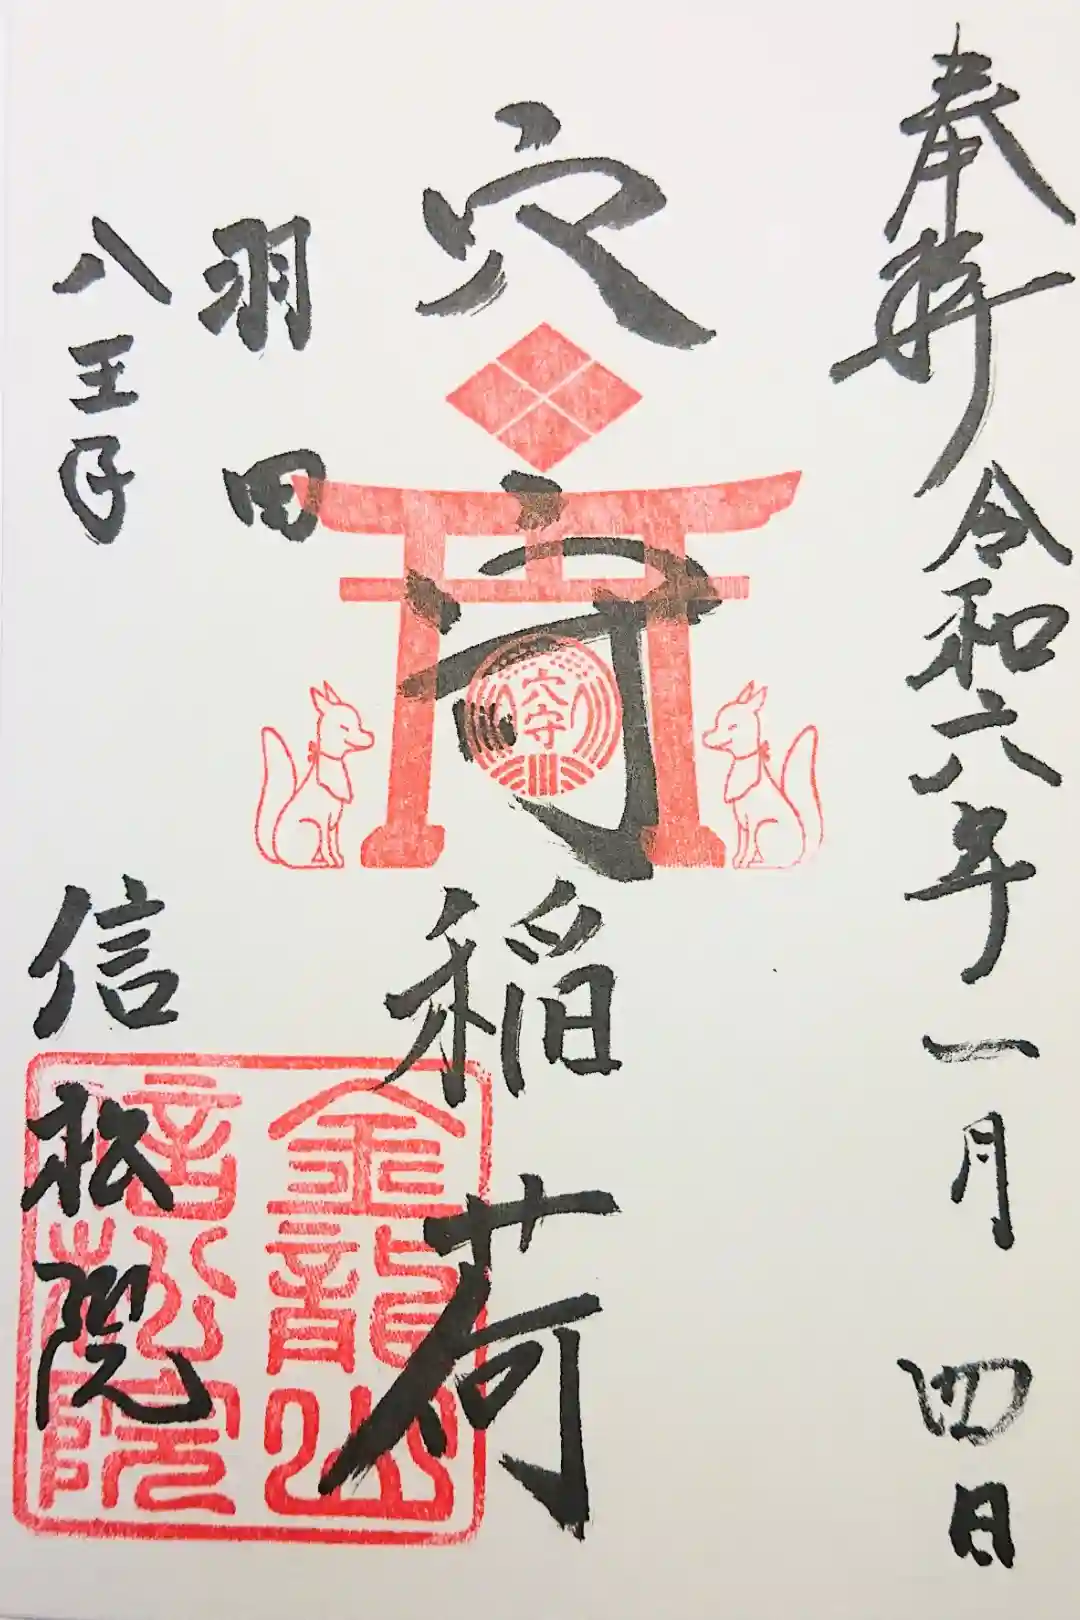 奉拝 令和六年一月四日
穴守稲荷
穴守
羽田
八王子 信松院
金龍山
信松院